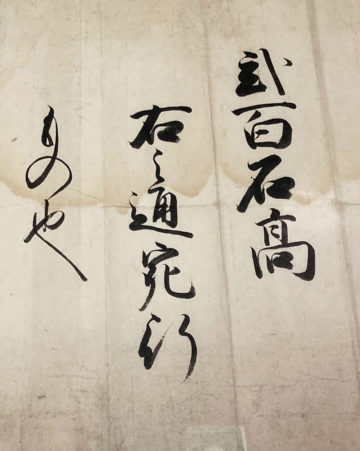 弐百石高
右之通宛行
もの也